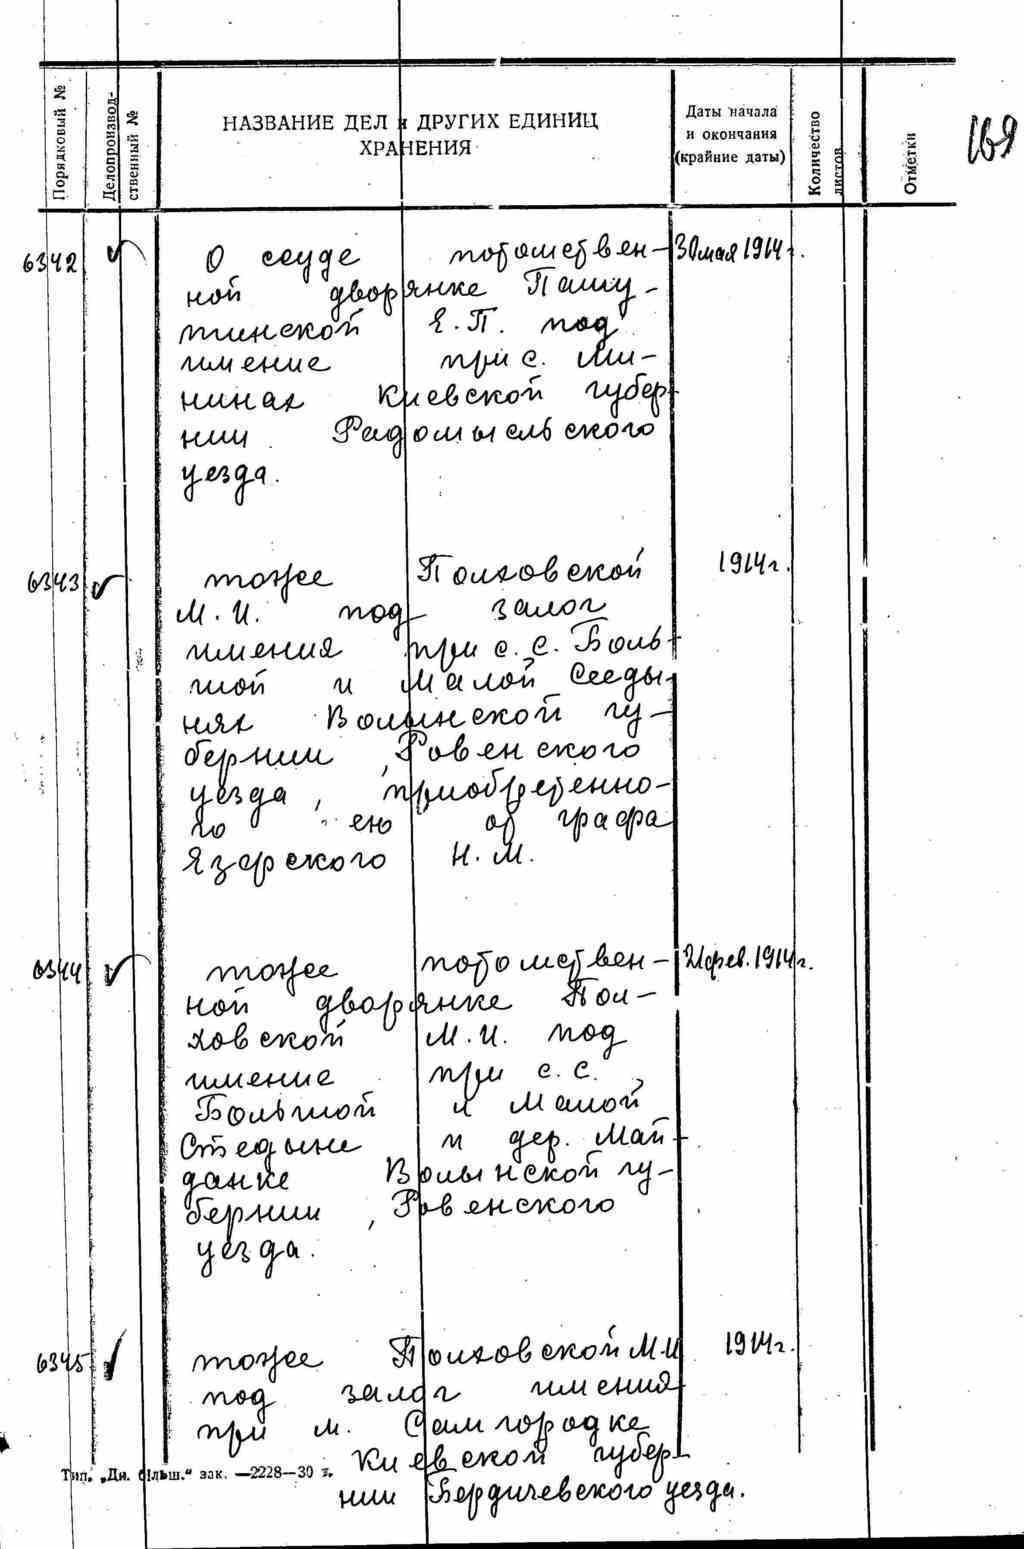 Порядковый №
Делопроизвод-
ственный №
НАЗВАНИЕ ДЕЛ и ДРУГИХ ЕДИНИЦ
ХРАНЕНИЯ
Даты начала
и окончания
(крайние даты)
Количество
листов
Отметки
169
6342 О ссуде потомствен- 30 мая 1914 г.
ной дворянке Пашу-
тинской Е.П. под
имение при с. Ми-
нинах Киевской губер
нии Радомысльского
уезда.
6343 тоже Полховской 1914 г.
М.И. под залог
имения при с.с. Боль-
шой и Малой Среды-
нях Волынской гу-
бернии, Ровенского
уезда, приобретенно-
го ею от графа
Н.М.
6344 тоже потомствен- 21 фев. 1914 г.
ной дворянке Пол-
ховской М.И. под
имение при с.с.
Большой и Малой
и дер. Май-
данке Волынской гу-
бернии, Ровенского
уезда.
6345 тоже Полховской М.И 1914 г.
под залог имения
при м. Самгородке
Киевской губер-
нии Бердичевского уезда.
Тип. „Дн. більш.“ зак. —2228—30 г.